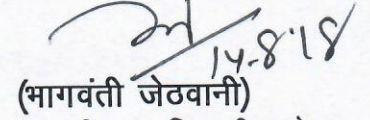 14-8-18
(भागवंती जेठवानी)